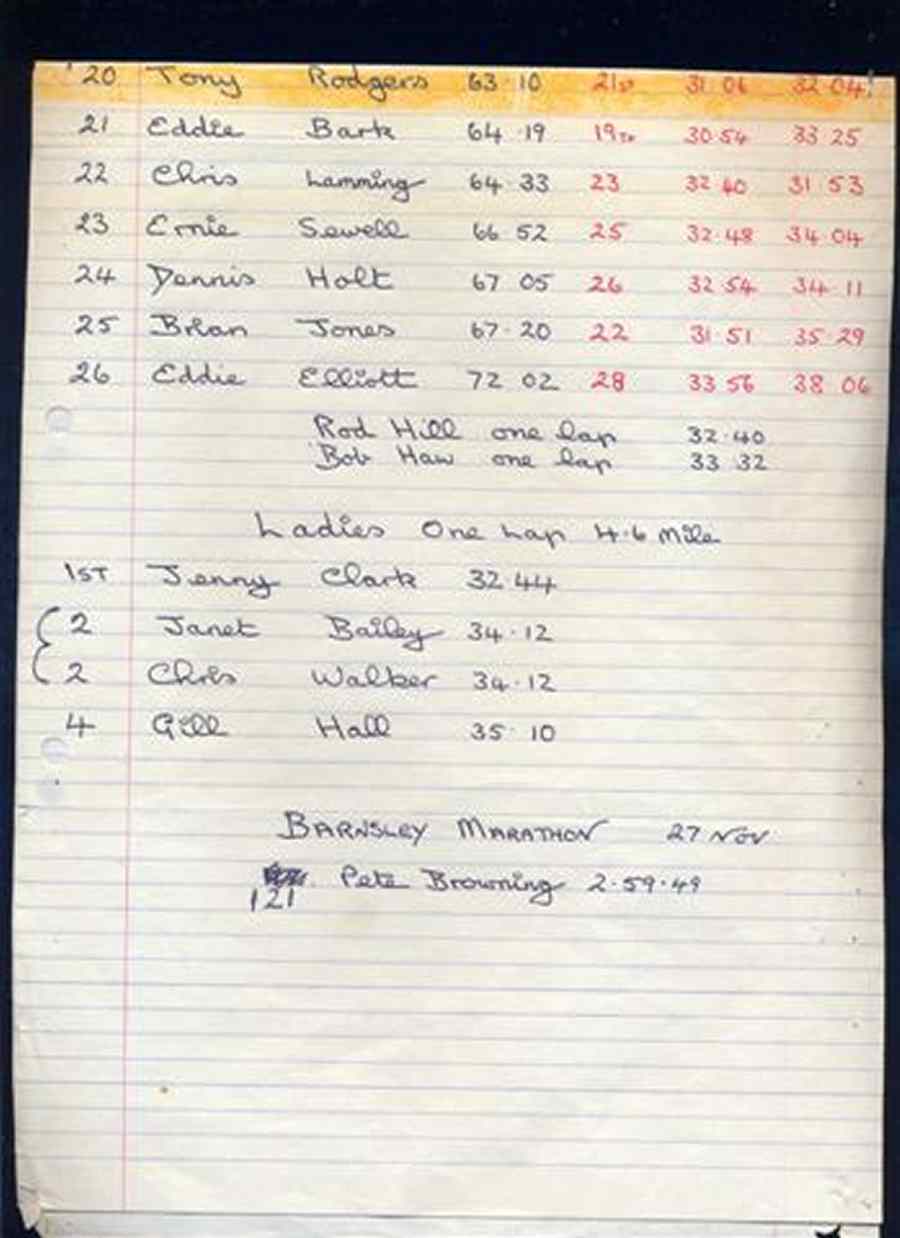 20 Tony Rodgers 63·10 21st 31 06 32 04
21 Eddie Bark 64 19 19th 30 54 33 25
22 Chris Lamming 64·33 23 32 40 31 53
23 Ernie Sewell 66 52 25 32·48 34 04
24 Dennis Holt 67 05 26 32 54 34 11
25 Brian Jones 67·20 22 31 51 35 29
26 Eddie Elliott 72 02 28 33 56 38 06
Rod Hill one lap 32·40
Bob Haw one lap 33 32
Ladies One Lap 4·6 Mile
1ST Jenny Clark 32 44
2 Janet Bailey 34·12
2 Chris Walker 34·12
4 Gill Hall 35·10
BARNSLEY MARATHON 27 NOV
121 Pete Browning 2·59·49